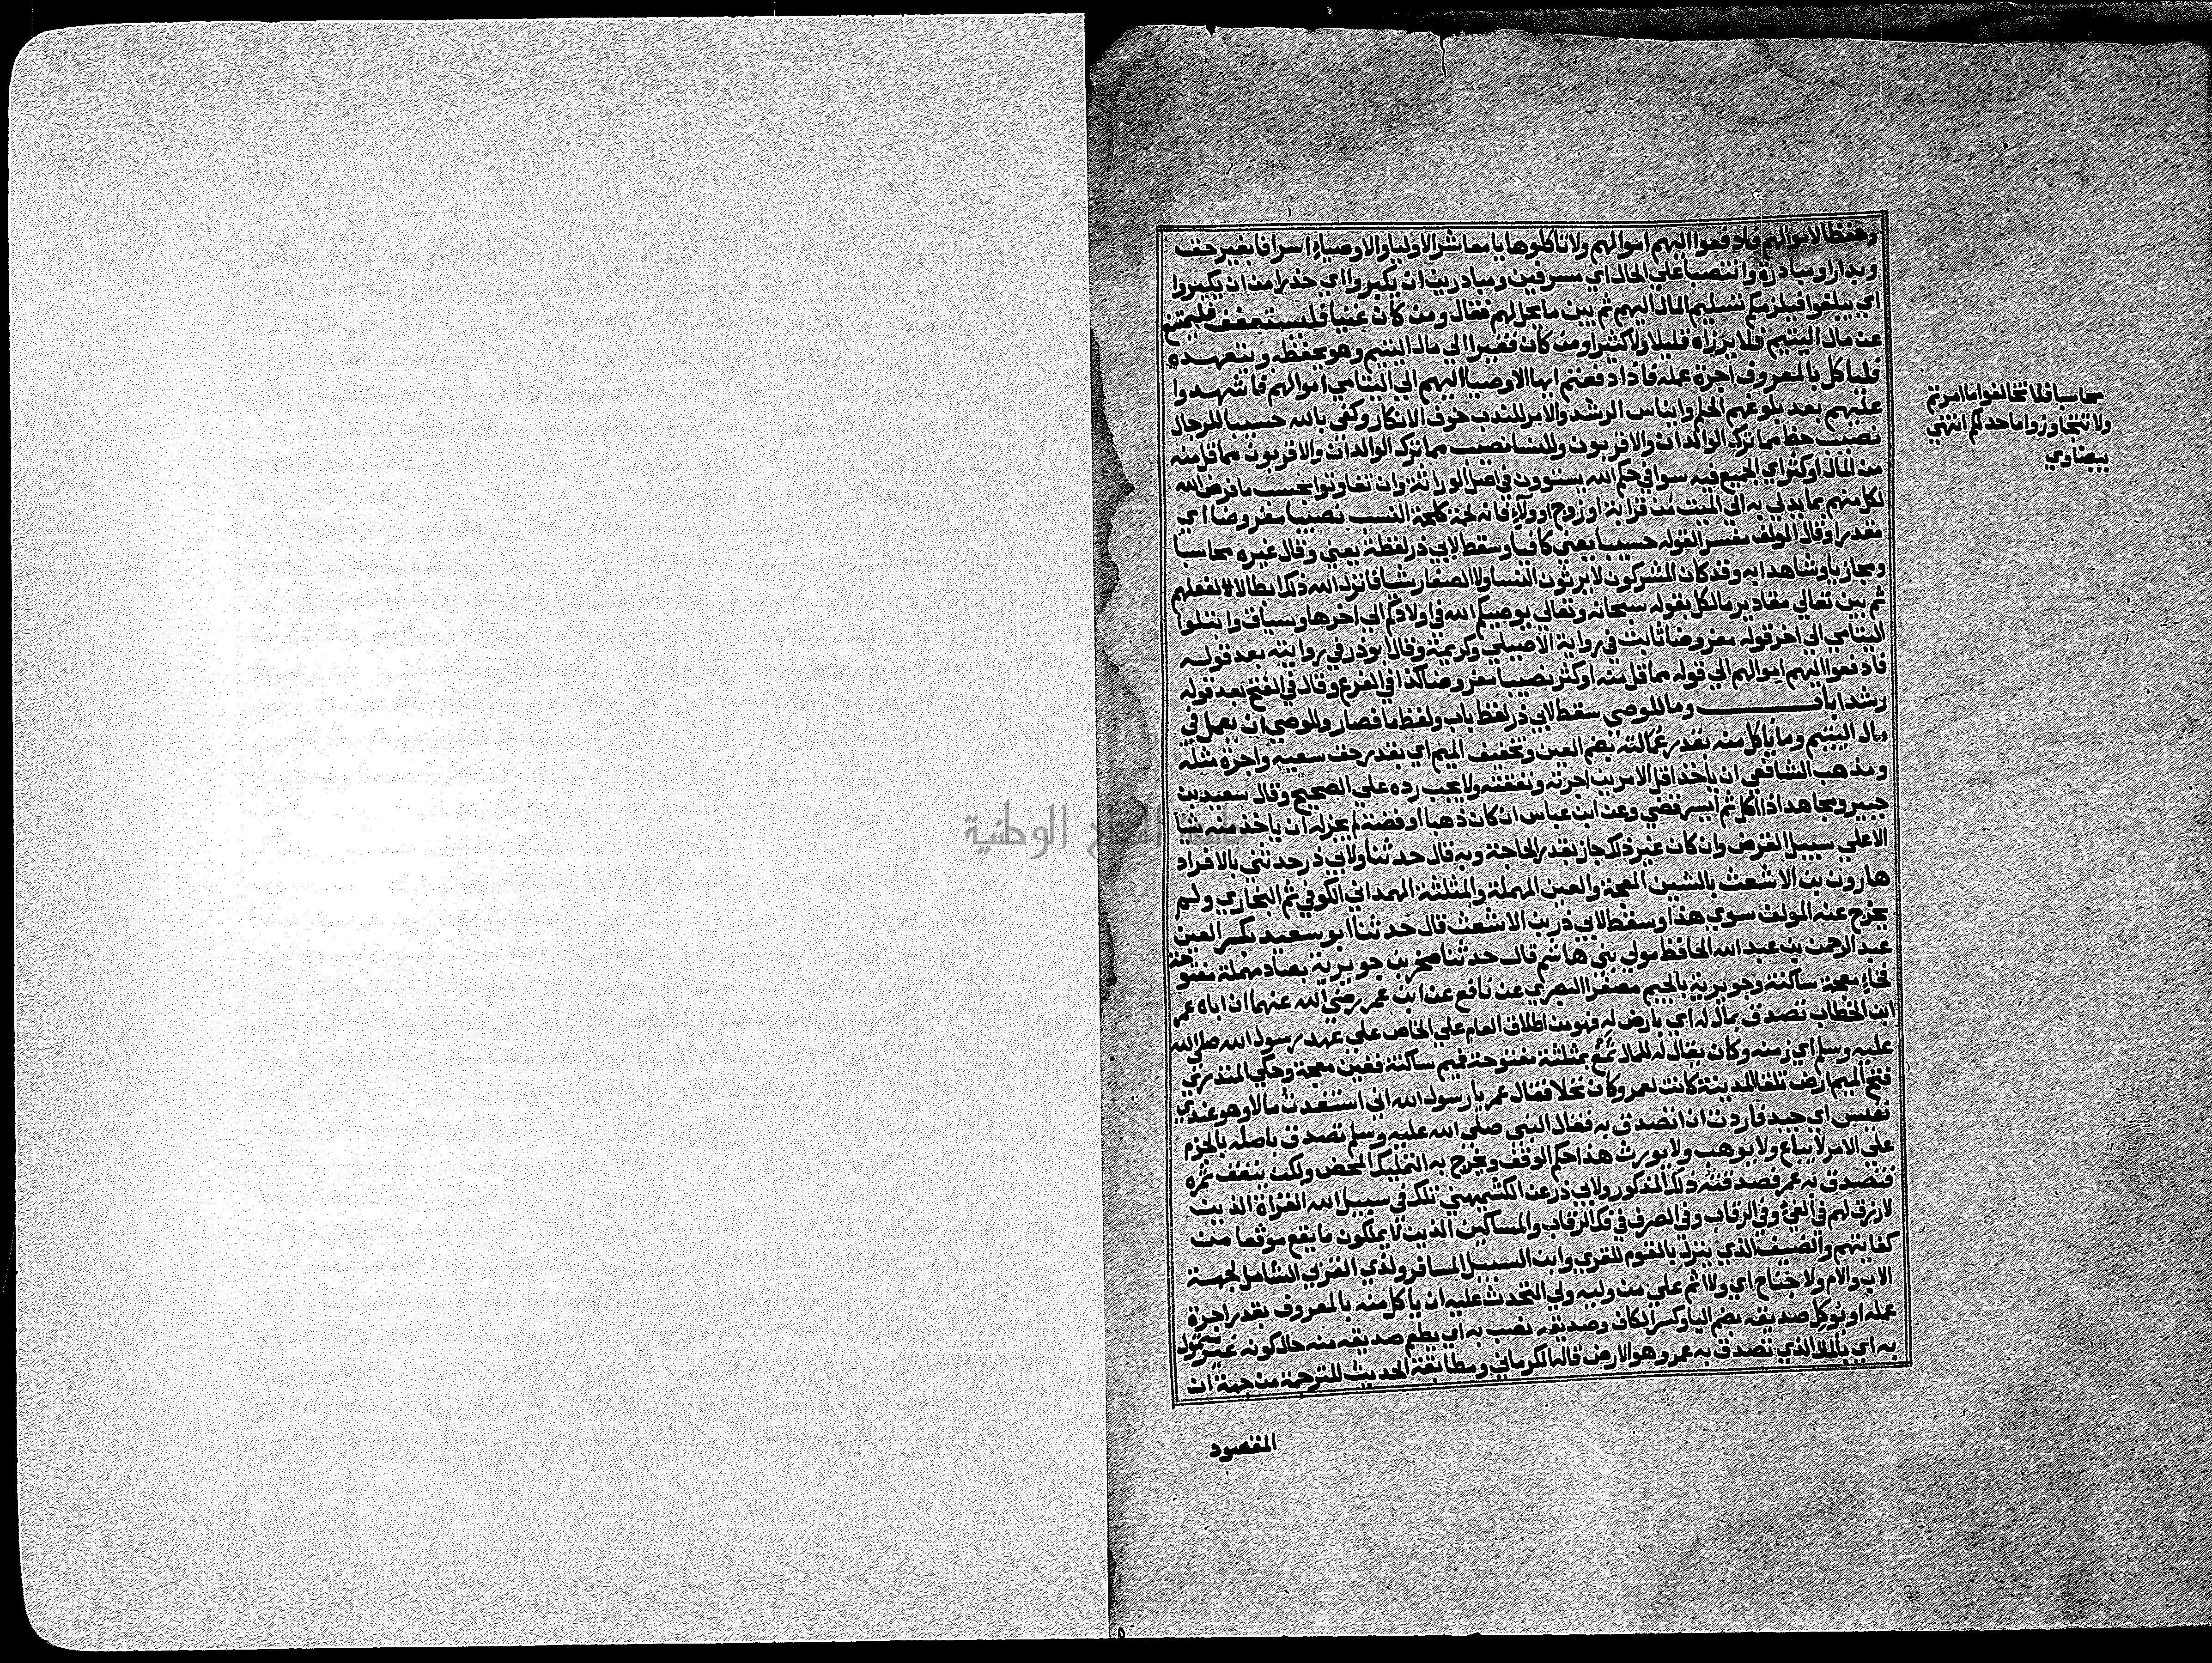 وحفظا لاموالهم فادفعوا اليهم اموالهم ولا تاكلوها يا معاشر الاوليا والاوصياء اسرافا بغير حق
وبدارا ومبادرة وانتصبا علي الحال اي مسرفين ومبادرين ان يكبروا اي حذرا من ان يكبروا
اي يبلغوا فيلزمكم تسليم المال اليهم ثم بين ما يحل لهم فقال ومن كان غنيا فليستعفف فليمتنع
عن مال اليتيم فلا يرزاه قليلا ولا كثيرا ومن كان فقيرا الي مال اليتيم وهو يحفظه ويتعهده
فلياكل بالمعروف اجرة عمله فاذا دفعتم ايها الاوصيا اليهم الي اليتامي اموالهم فاشهدوا
عليهم بعد بلوغهم الحلم وايناس الرشد والامر للندب خوف الانكار وكفي بالله حسيبا للرجال
نصيب حظ مما ترك الوالدان والاقربون وللنسا نصيب مما ترك الوالدان والاقربون مما قل منه
من المال او كثر اي الجميع فيه سوا في حكم الله يستوون في اصل الوراثة وان تفاوتوا بحسب ما فرض الله
لكل منهم بما يدلي به الي الميت من قرابة او زوج او ولاء فانه لحمة كلحمة النسب نصيبا مفروضا اي
مقدرا وقال المولف مفسرا لقوله حسيبا يعني كافيا وسقط لابي ذر لفظة يعني وقال غيره محاسبا
ومجازيا وشاهدا به وقد كان المشركون لا يرثون النسا ولا الصغار شيا فانزل الله ذلك ابطالا لفعلهم
ثم بين تعالي مقادير ما لكل بقوله سبحانه وتعالي يوصيكم الله في اولادكم الي اخرها وسياق وابتلوا
اليتامي الي اخر قوله مفروضا ثابت في رواية الاصيلي وكريمة وقال ابو ذر في روايته بعد قوله
فادفعوا اليهم اموالهم الي قوله مما قل منه او كثر نصيبا مفروضا كذا في الفرع وقال في الفتح بعد قوله
رشدا باب وما للوصي سقط لابي ذر لفظ باب ولفظ ما فصار وللوصي ان يعمل في
مال اليتيم وما ياكل منه بقدر عمالته بضم العين وتخفيف الميم اي بقدر حق سعيه واجرة مثله
ومذهب الشافعي ان ياخذ اقل الامرين اجرته ونفقته ولا يجب رده علي الصحيح وقال سعيد بن
جبير ومجاهد اذا اكل ثم ايسر قضي وعن ابن عباس ان كان ذهبا او فضة لم يجز له ان ياخذ منه شيا
الا علي سبيل القرض وان كان غير ذلك جاز بقدر الحاجة وبه قال حدثنا ولابي ذر حدثني بالافراد
هارون بن الاشعث بالشين المعجمة والعين المهملة والمثلثة الهمداني الكوفي ثم البخاري ولم
يخرج عنه المولف سوي هذا وسقط لابي ذر بن الاشعث قال حدثنا ابو سعيد بكسر العين
عبد الرحمن بن عبد الله الحافظ مولي بني هاشم قال حدثنا صخر بن جويرية بصاد مهملة مفتوحة
فخاء معجمة ساكنة وجويرية بالجيم مصغرا البصري عن نافع عن ابن عمر رضي الله عنهما ان اباه عمر
ابن الخطاب تصدق بمال له اي بارض له فهو من اطلاق العام علي الخاص علي عهد رسول الله صلي الله
عليه وسلم اي زمنه وكان يقال له للمال ثمغ بمثلثة مفتوحة فميم ساكنة فغين معجمة وحكي المنذري
فتح الميم ارض تلقا المدينة كانت لعمر وكان نخلا فقال عمر يا رسول الله اني استفدت مالا وهو عندي
نفيس اي جيد فاردت ان اتصدق به فقال النبي صلي الله عليه وسلم تصدق باصله بالجزم
علي الامر لا يباع ولا يوهب ولا يورث هذا حكم الوقف ويخرج به التمليك المحض ولكن ينفق ثمره
فتصدق به عمر فصدقته ذلك المذكور ولابي ذر عن الكشميهني تلك في سبيل الله الغزاة الذين
لا رزق لهم في الفئ وفي الرقاب وفي الصرف في فك الرقاب والمساكين الذين لا يملكون ما يقع موقعا من
كفايتهم والضيف الذي ينزل بالقوم للقري وابن السبيل المسافر ولذي القربي الشامل لجهة
الاب والام ولا جناح اي ولا اثم علي من وليه ولي التحدث عليه ان ياكل منه بالمعروف بقدر اجرة
عمله او يوكل صديقه بضم اليا وكسر الكاف وصديقه نصب به اي يطعم صديقه منه حال كونه غير متمول
به اي بالمال الذي تصدق به عمر وهو الارض قاله الكرماني ومطابقة الحديث للترجمة من جهة ان
المقصود
محاسبا فلا تخالفوا ما امرتم
ولا تتجاوزوا ما حد لكم انتهي
بيضاوي
جامعة النجاح الوطنية